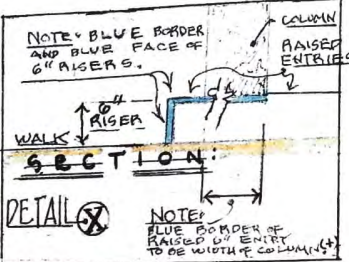 NOTE: BLUE BORDER
AND BLUE FACE OF
6" RISERS.
COLUMN
RAISED
ENTRIES
6"
RISER
WALK
SECTION:
DETAIL X
NOTE:
BLUE BORDER OF
RAISED 6" ENTRY
TO BE WIDTH OF COLUMNS(+)